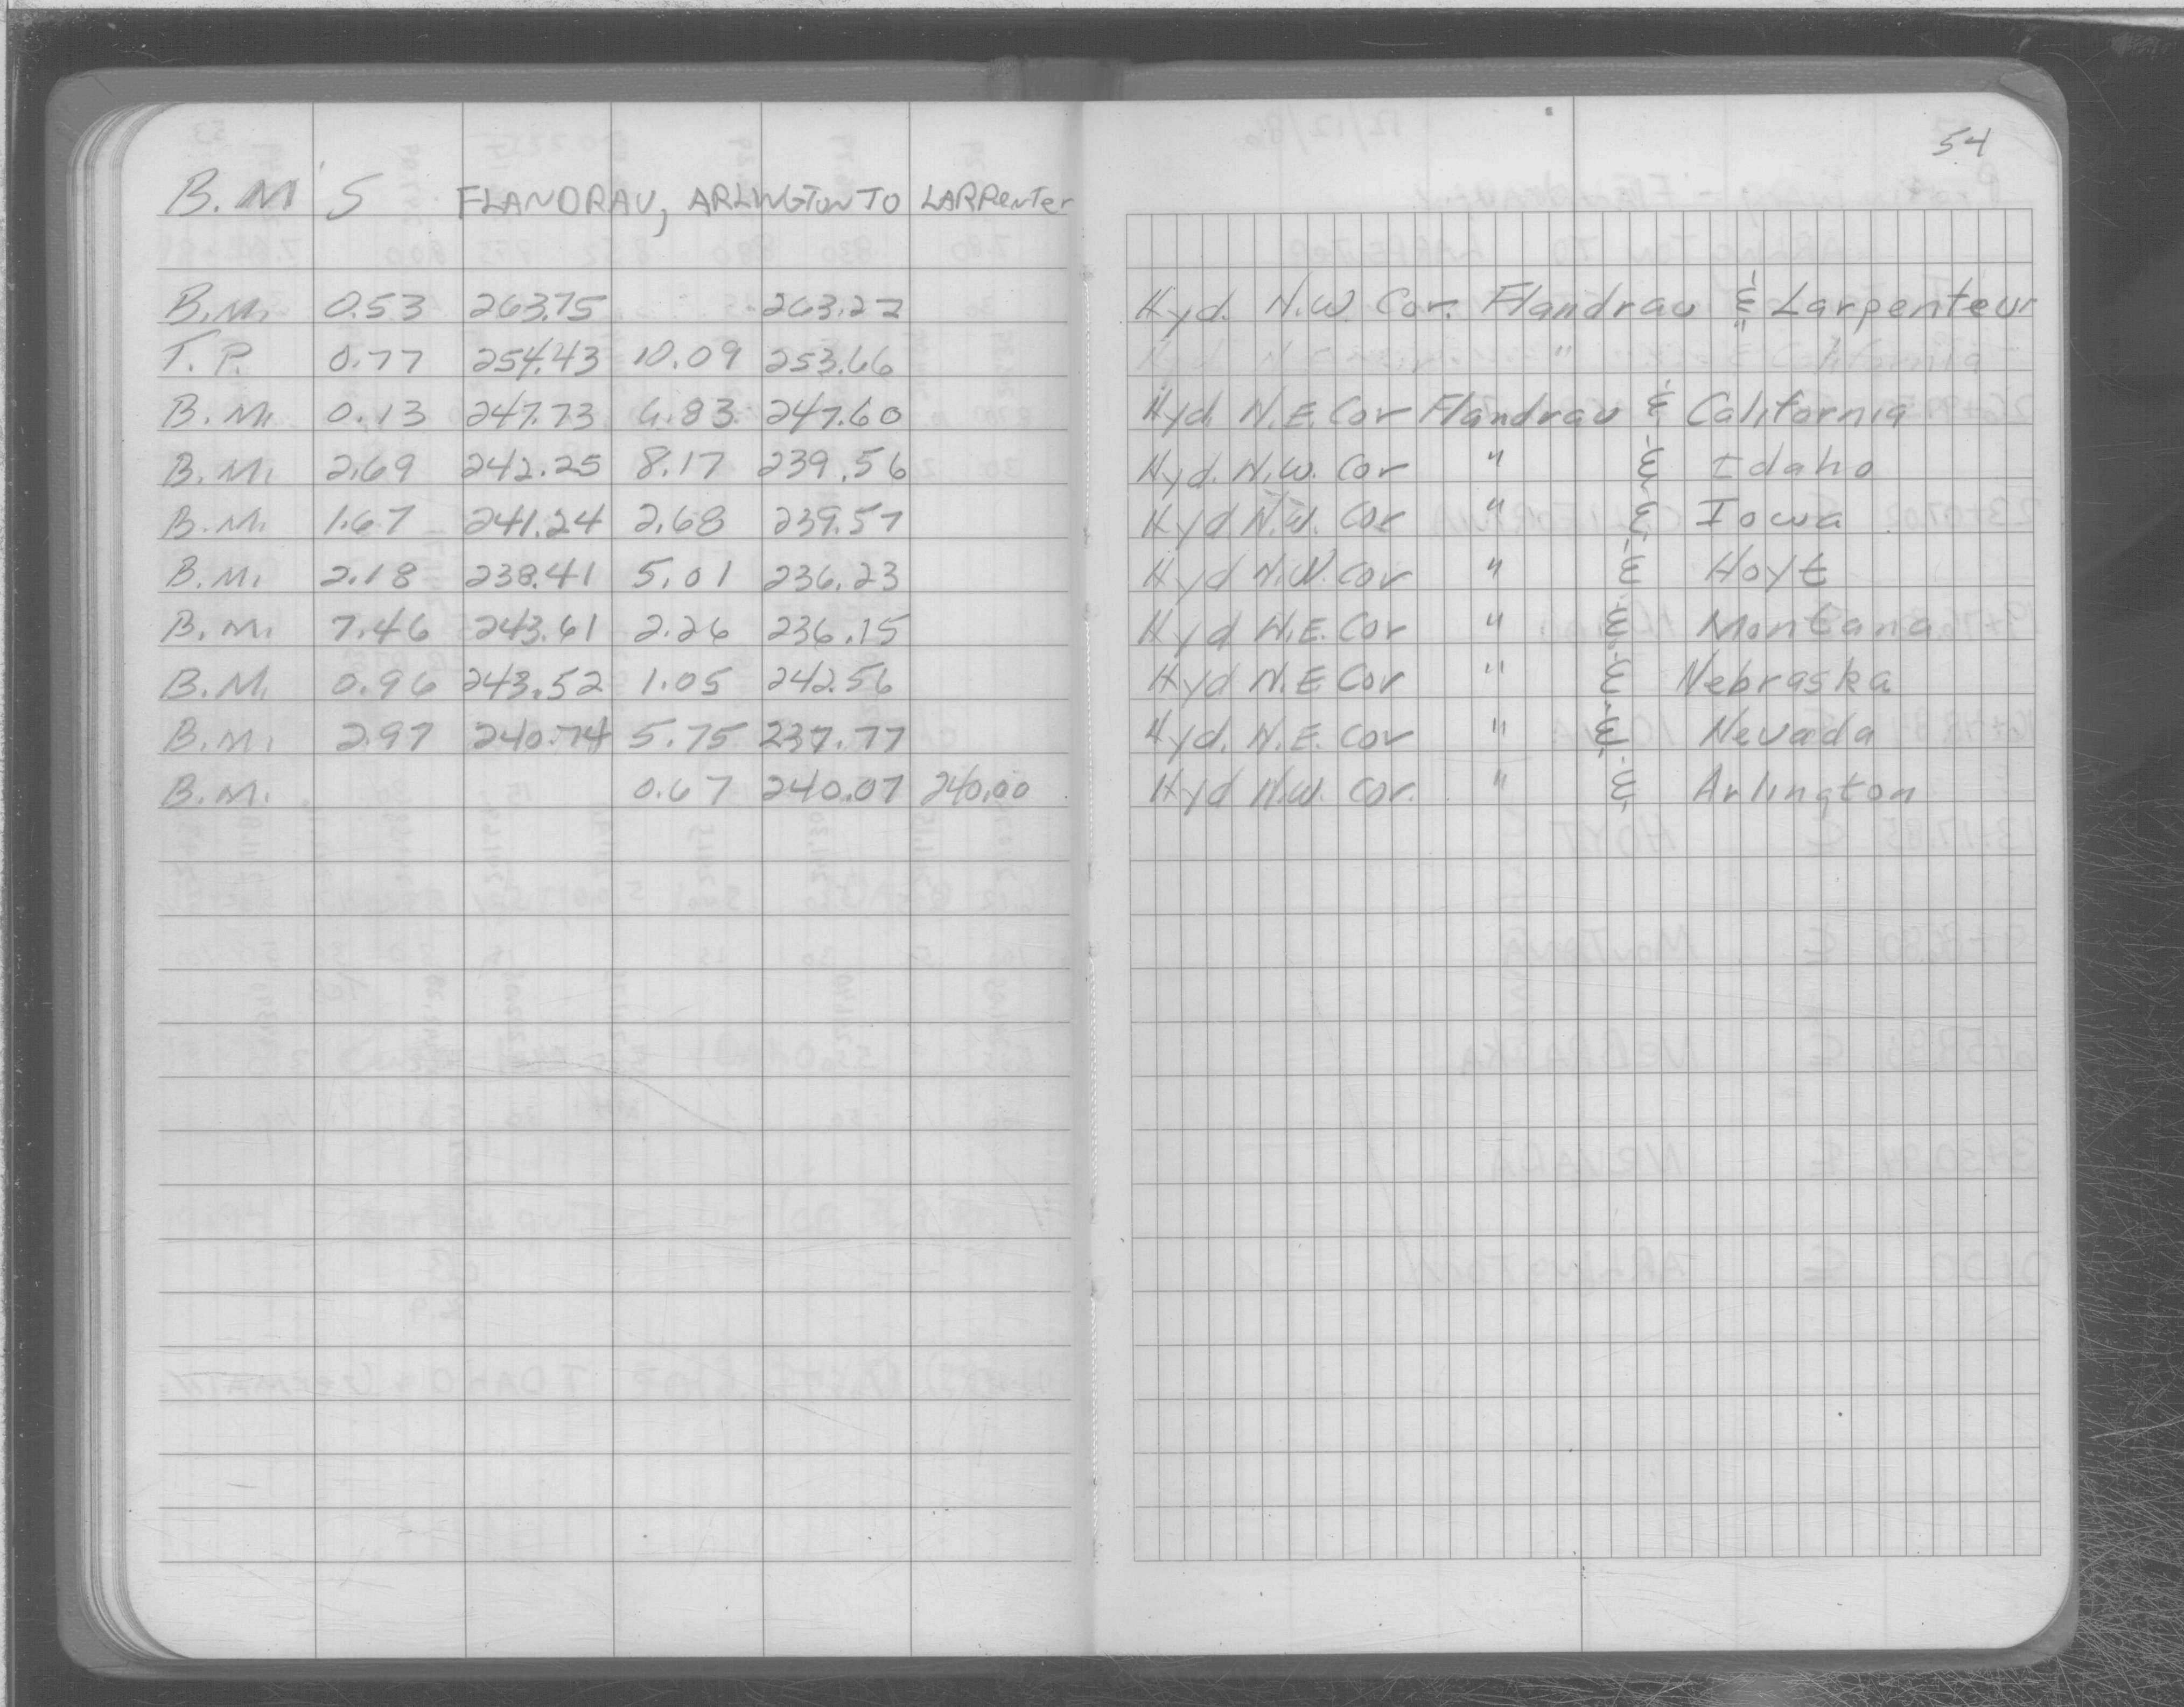 54
B.M'S FLANDRAU, ARLINGTON TO LARPenTer
B.M. 0.53 263.75 263.22 Hyd. N.W. Cor. Flandrau & Larpenteur
T.P. 0.77 254.43 10.09 253.66
B.M. 0.13 247.73 6.83 247.60 Hyd. N.E. Cor Flandrau & California
B.M. 2.69 242.25 8.17 239.56 Hyd. N.W. Cor " & Idaho
B.M. 1.67 241.24 2.68 239.57 Hyd N.W. Cor " & Iowa
B.M. 2.18 238.41 5.01 236.23 Hyd N.W. Cor " & Hoyt
B.M. 7.46 243.61 2.26 236.15 Hyd N.E. Cor " & Montana
B.M. 0.96 243.52 1.05 242.56 Hyd N.E. Cor " & Nebraska
B.M. 2.97 240.74 5.75 237.77 Hyd. N.E. Cor " & Nevada
B.M. 0.67 240.07 240.00 Hyd N.W. Cor. " & Arlington